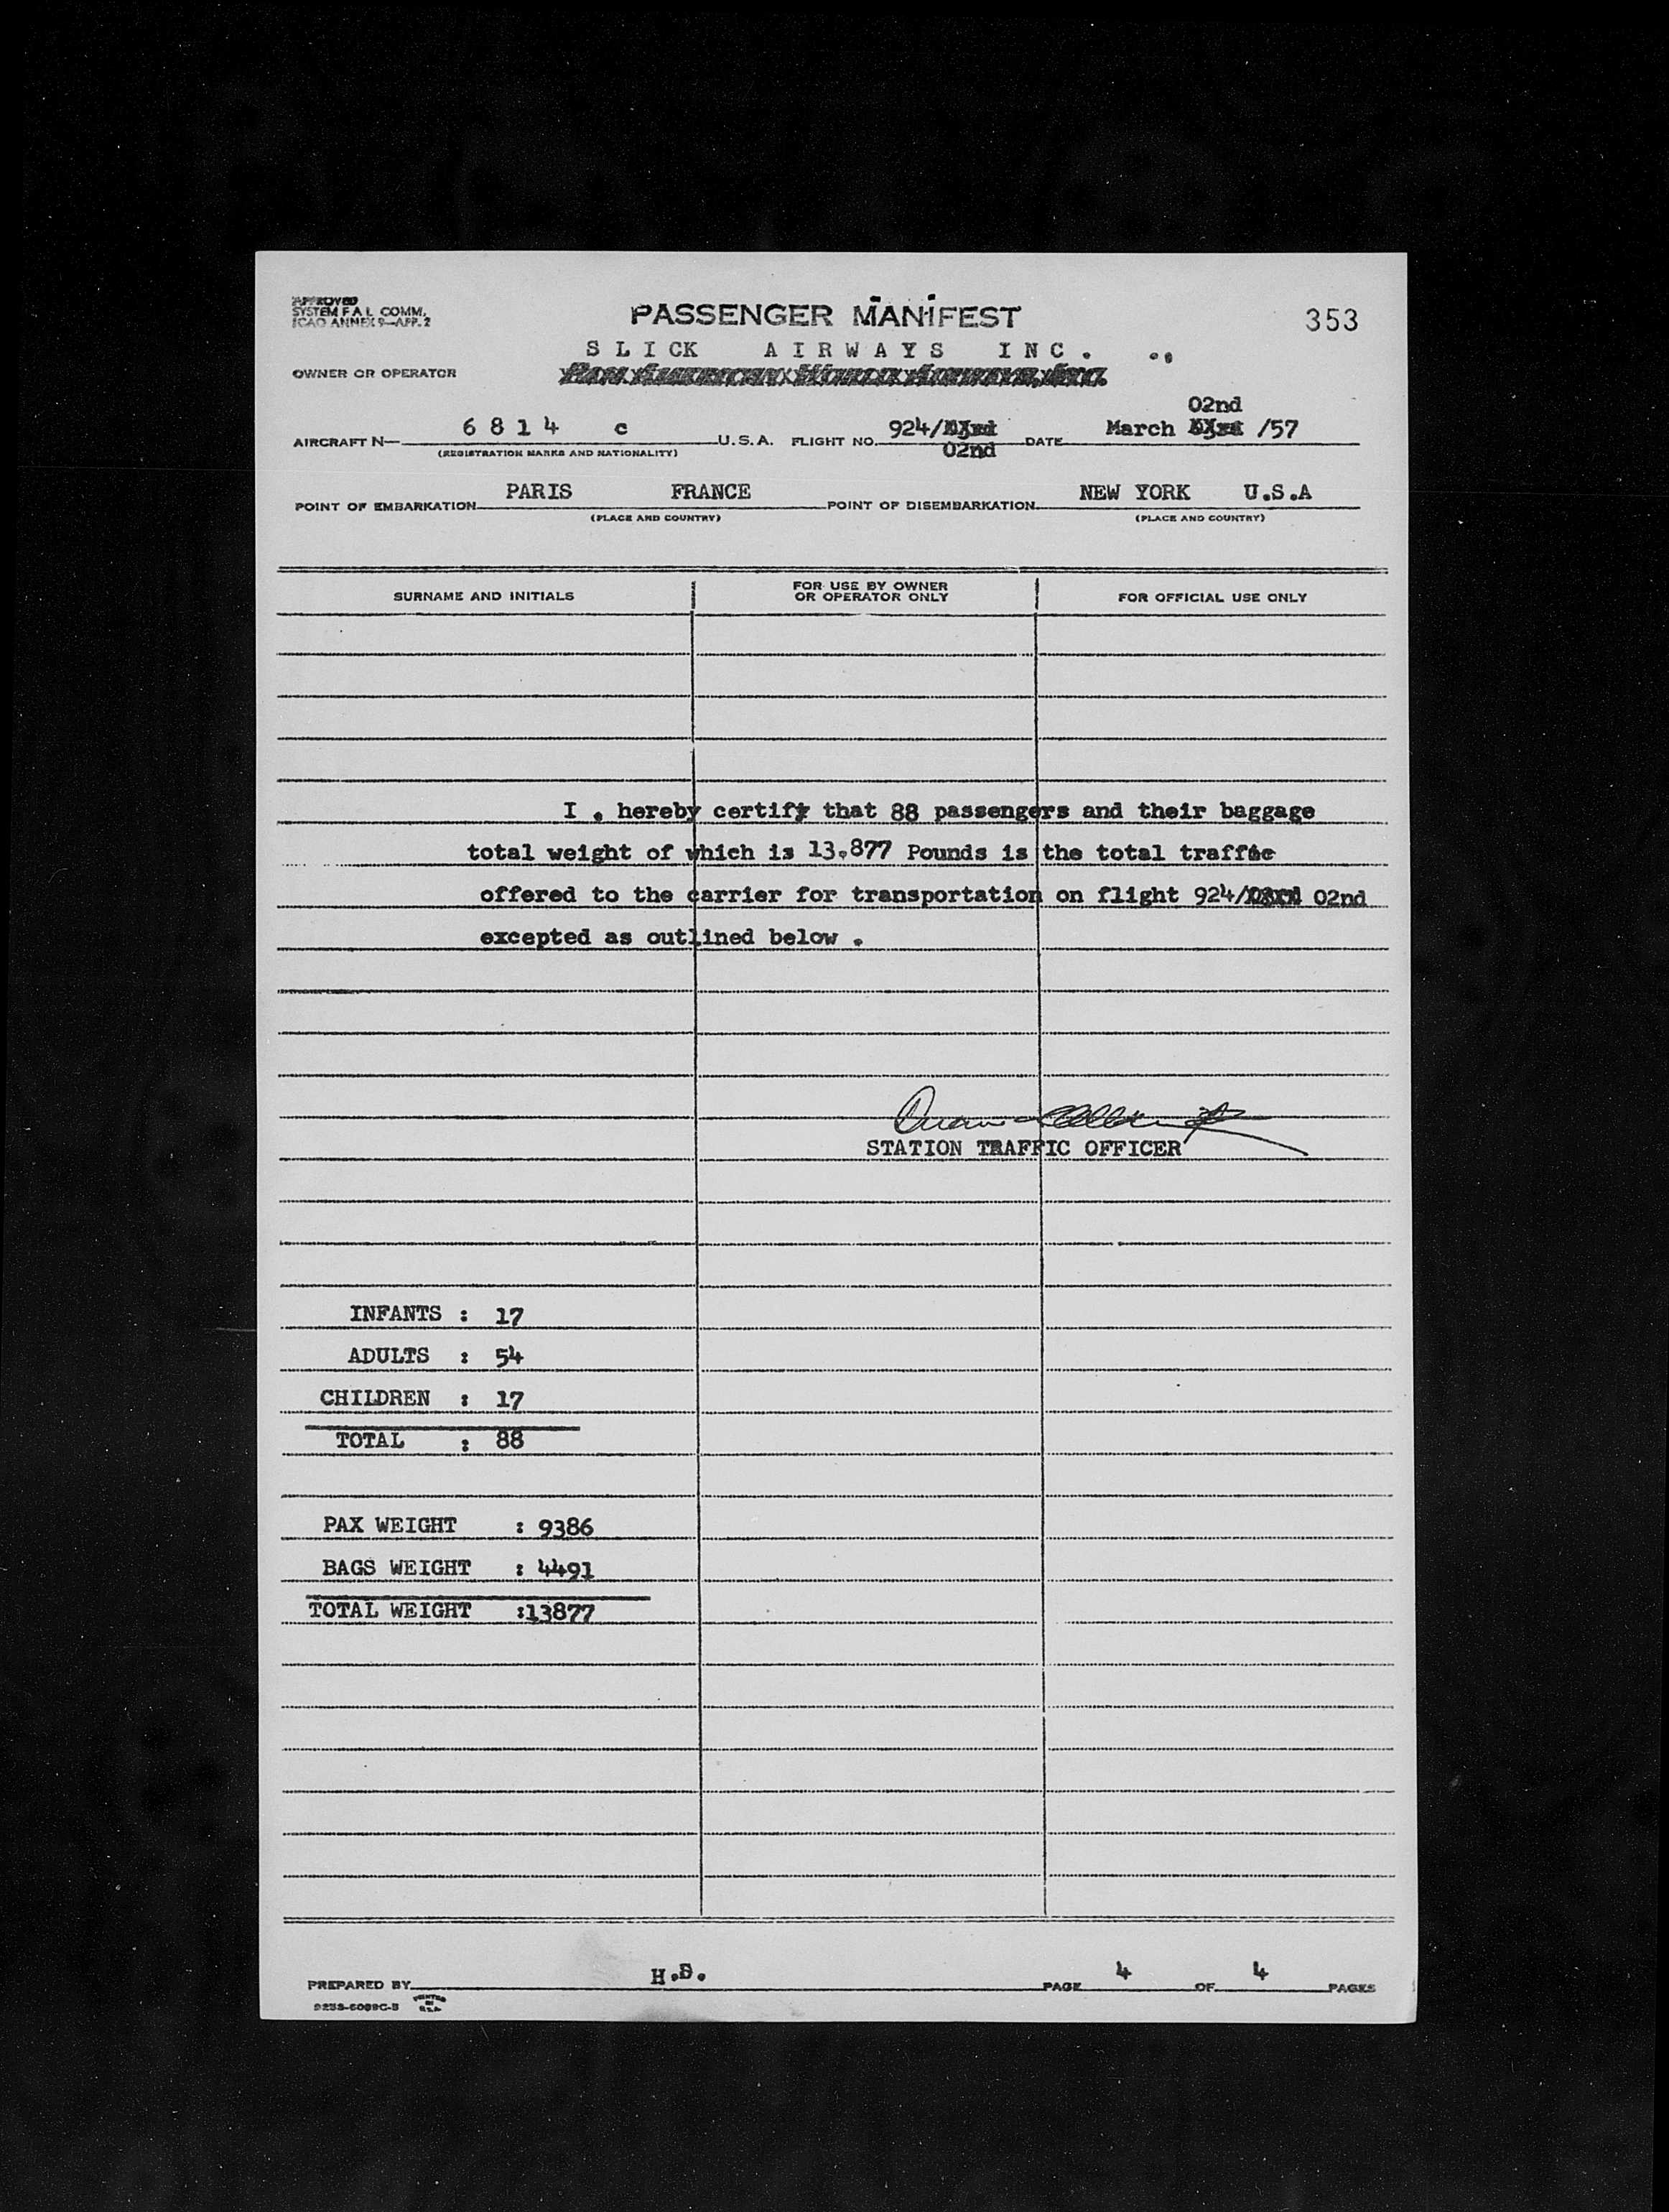 APPROVED
SYSTEM F.A.L. COMM.
ICAO ANNEX 9—APP. 2
PASSENGER MANIFEST
353
SLICK AIRWAYS INC.
OWNER OR OPERATOR
Pan American World Airways, Inc.
02nd
AIRCRAFT N— 6814 c U.S.A. FLIGHT NO. 924/ DATE March /57
(REGISTRATION MARKS AND NATIONALITY)
02nd
POINT OF EMBARKATION PARIS FRANCE POINT OF DISEMBARKATION NEW YORK U.S.A
(PLACE AND COUNTRY) (PLACE AND COUNTRY)
SURNAME AND INITIALS
FOR USE BY OWNER
OR OPERATOR ONLY
FOR OFFICIAL USE ONLY
I , hereby certify that 88 passengers and their baggage
total weight of which is 13,877 Pounds is the total traffic
offered to the carrier for transportation on flight 924/ 02nd
excepted as outlined below .
STATION TRAFFIC OFFICER
INFANTS : 17
ADULTS : 54
CHILDREN : 17
TOTAL : 88
PAX WEIGHT : 9386
BAGS WEIGHT : 4491
TOTAL WEIGHT :13877
PREPARED BY H.D. PAGE 4 OF 4 PAGES
PRINTED
IN
U.S.A.